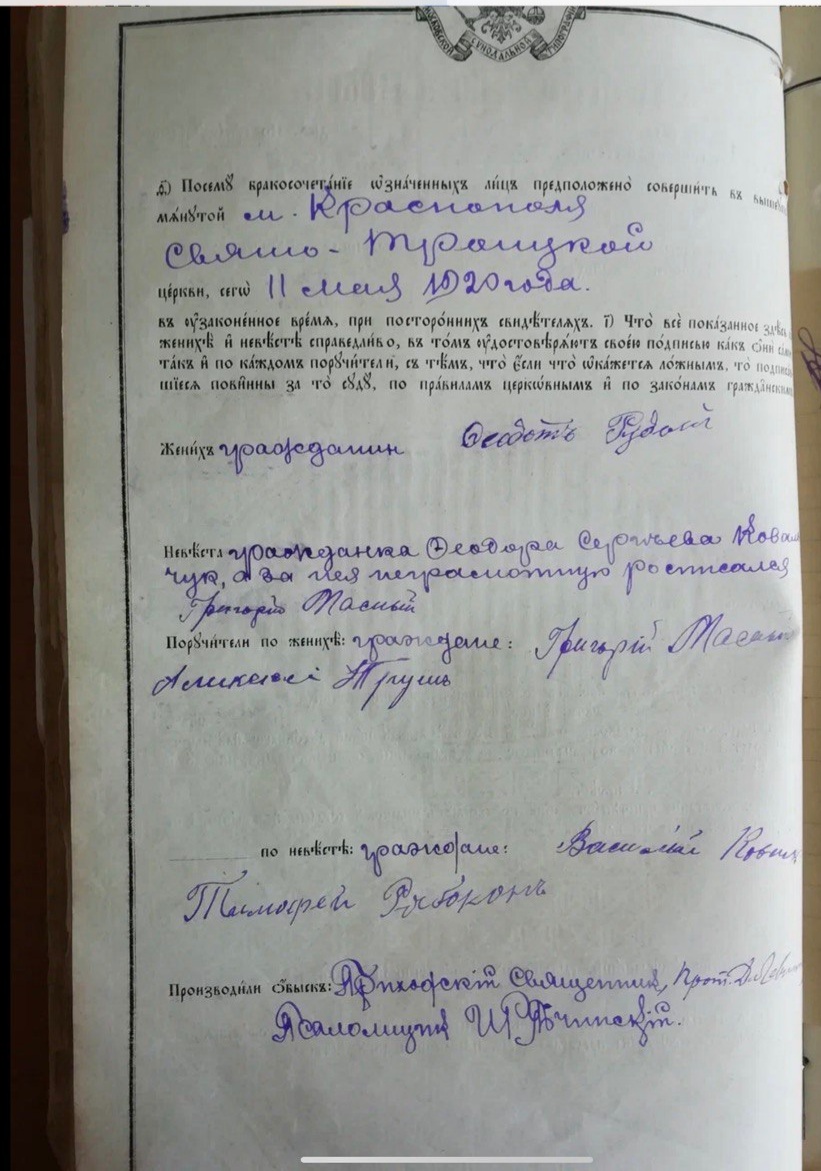 МОСКОВСКОЙ СѴНОДАЛЬНОЙ ТИПОГРАФІИ
д҃) Посемꙋ̀ бракосочета́нїе ѡ҆зна́ченныхъ ли́цъ предположено̀ соверши́ть въ
мѧ́нутой м. Краснополя
Свято-Троицкой
це́ркви, сегѡ̀ 11 мая 1920 года.
въ ᲂу҆зако́ненное вре́мя, при посторо́ннихъ свидѣ́телѧхъ. і҃) Что̀ всѐ пока́занное здѣ́сь
женихѣ̀ и҆ невѣ́стѣ справедли́во, въ то́мъ ᲂу҆достовѣрѧ́ютъ свое́ю по́дписью ка́къ ѻ҆нѝ са́ми
та́къ и҆ по ка́ждомъ поручи́тели, съ тѣ́мъ, что̀ є҆́сли что̀ ѡ҆ка́жется ло́жнымъ, то̀
шїеся пови́нны за то̀ сꙋдꙋ̀, по пра́виламъ церко́внымъ и҆ по зако́намъ
Жени́хъ гражданин Рудой
Невѣ́ста гражданка Ѳеодора Сергѣева Ковал
чук, а за нея неграмотную росписался
Григорій Масный
Порꙋчи́тели по женихѣ̀: граждане: Григорій Масный
Аликсей Трушъ
по невѣ́стѣ: граждане: Василій
Тимофей Рябоконь
Производи́ли ѻ҆́быскъ: Приходскій Священник, Прот. Д.
Псаломщик